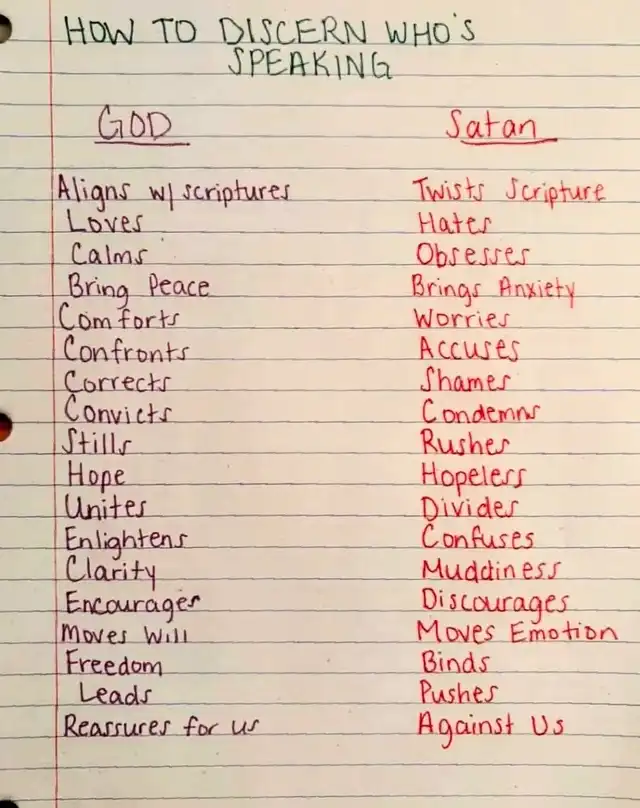 HOW TO DISCERN WHO'S
SPEAKING
GOD Satan
Aligns w/ scriptures Twists Scripture
Loves Hates
Calms Obsesses
Bring Peace Brings Anxiety
Comforts Worries
Confronts Accuses
Corrects Shames
Convicts Condemns
Stills Rushes
Hope Hopeless
Unites Divides
Enlightens Confuses
Clarity Muddiness
Encourages Discourages
Moves Will Moves Emotion
Freedom Binds
Leads Pushes
Reassures for us Against Us